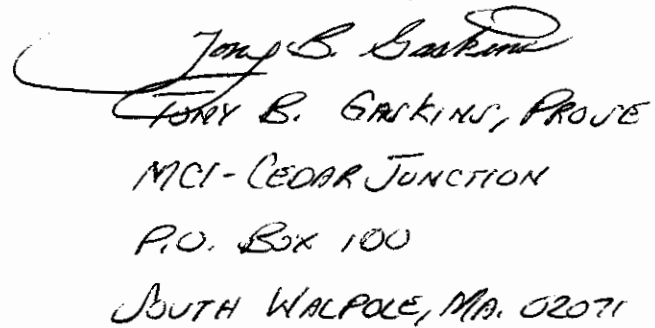 Tony B. Gaskins
TONY B. GASKINS, PROSE
MCI-CEDAR JUNCTION
P.O. BOX 100
SOUTH WALPOLE, MA. 02071